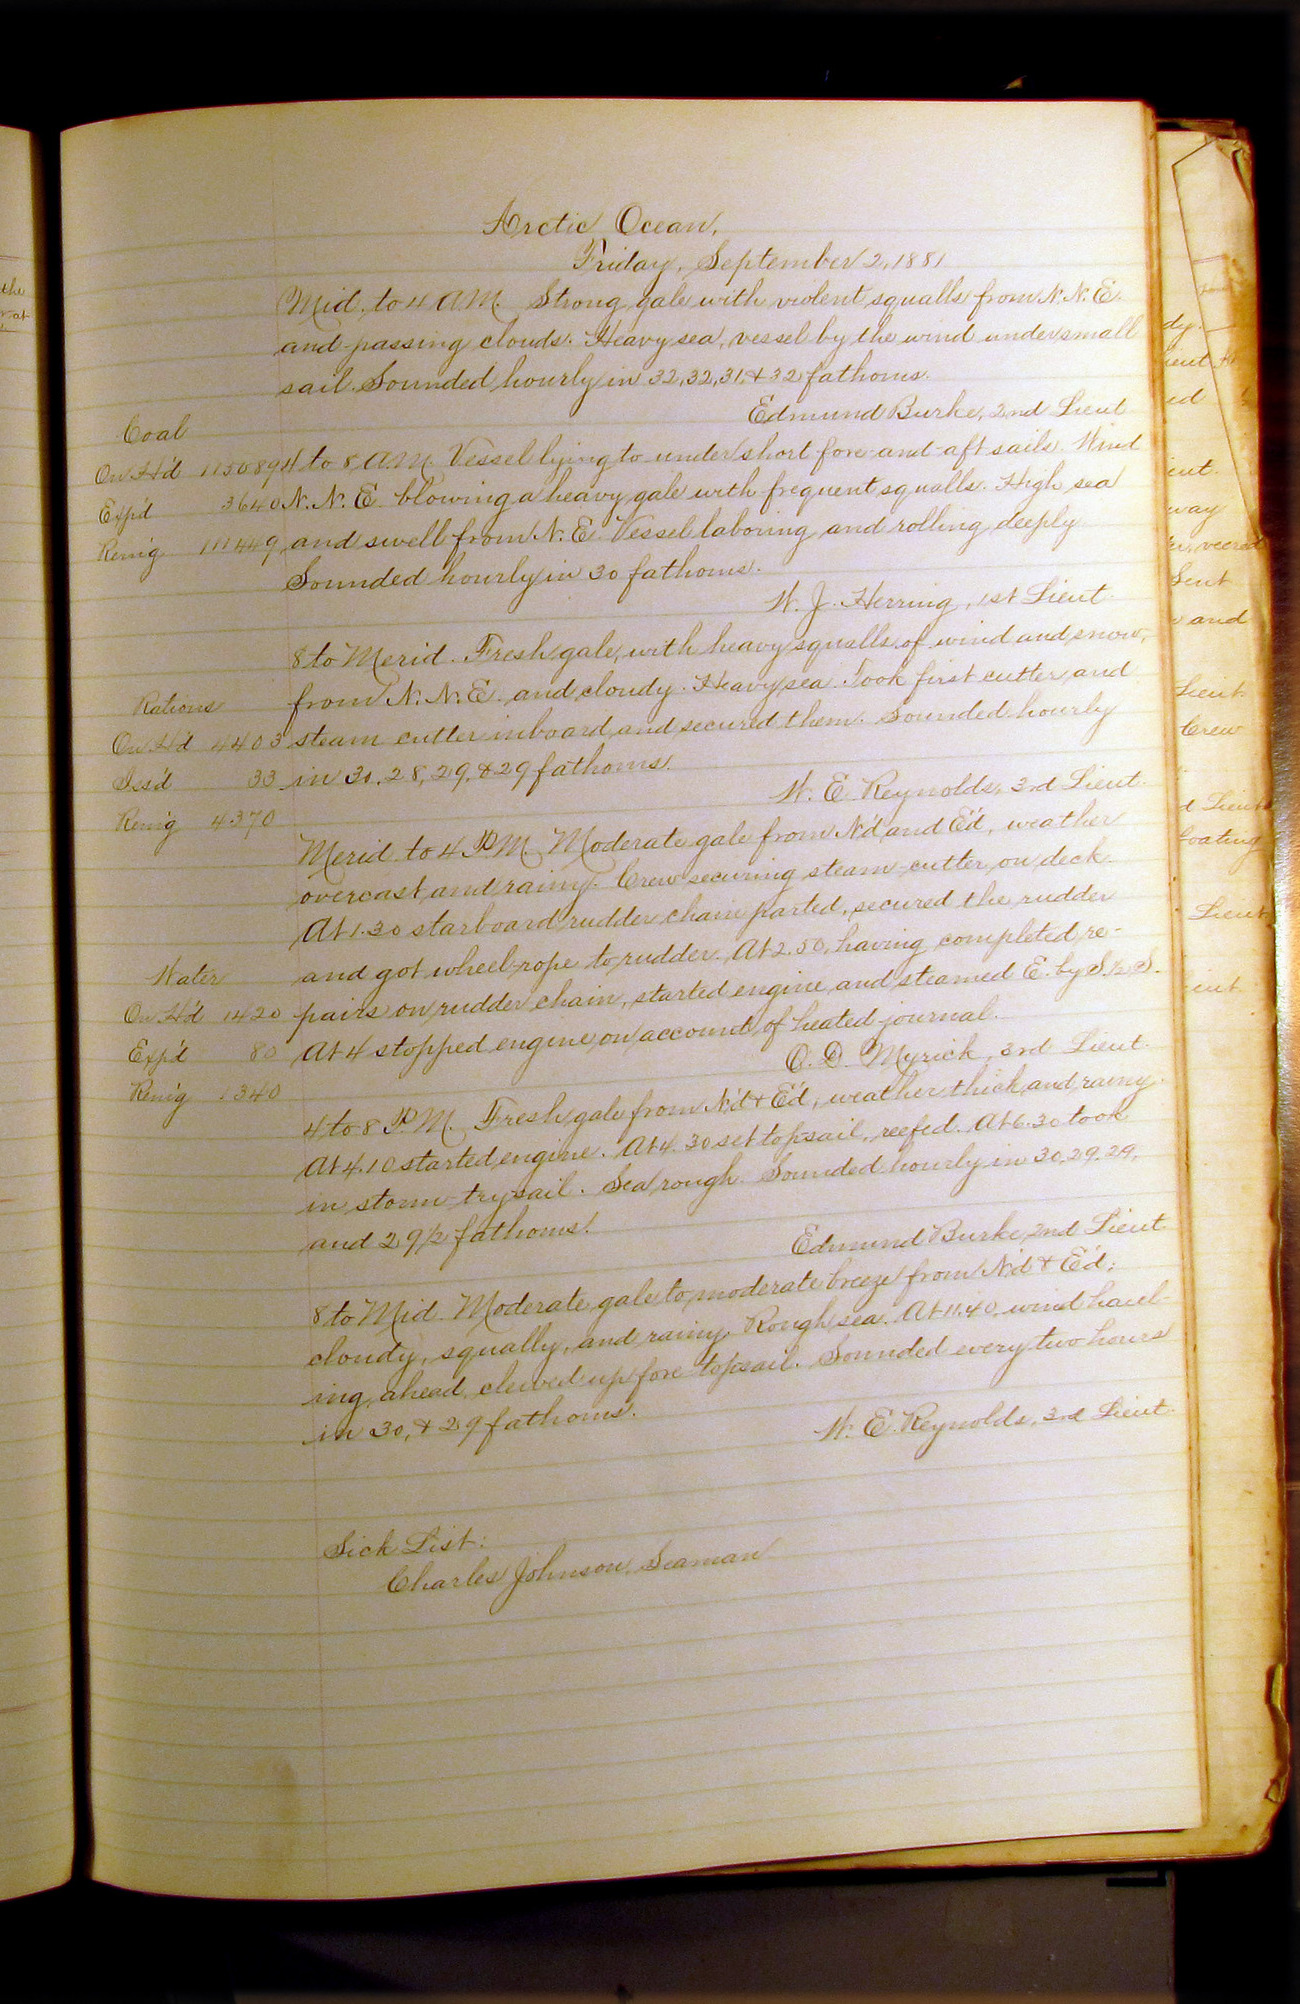 Arctic Ocean,
Friday, September 2, 1881
Mid. to 4 A.M. Strong gale with violent squalls from N.N.E.
and passing clouds. Heavy sea, vessel by the wind under small
sail. Sounded hourly in 32, 32, 31, & 32 fathoms.
Edmund Burke, 2nd Lieut.
Coal
On H'd 115089
Exp'd 3640
Rem'g 111449
4 to 8 A.M. Vessel lying to under short fore-and-aft sails. Wind
N.N.E. blowing a heavy gale with frequent squalls. High sea
and swell from N.E. Vessel laboring and rolling deeply
Sounded hourly in 30 fathoms.
W. J. Herring, 1st Lieut.
8 to Merid. Fresh gale, with heavy squalls of wind and snow,
from N.N.E. and cloudy. Heavy sea. Took first cutter and
steam cutter inboard and secured them. Sounded hourly
in 30, 28, 29, & 29 fathoms.
W. E. Reynolds, 3rd Lieut.
Rations
On H'd 4403
Iss'd 33
Rem'g 4370
Merid. to 4 P.M. Moderate gale from N'd and E'd, weather
overcast and rainy. Crew securing steam-cutter on deck.
At 1.30 starboard rudder chain parted, secured the rudder
and got wheel-rope to rudder. At 2.50, having completed re-
pairs on rudder chain, started engine and steamed E. by S. 1/2 S.
At 4 stopped engine on account of heated journal.
O. D. Myrick, 3rd Lieut.
Water
On H'd 1420
Exp'd 80
Rem'g 1340
4 to 8 P.M. Fresh gale from N'd & E'd, weather thick and rainy.
At 4.10 started engine. At 4.30 set topsail, reefed. At 6.30 took
in storm-trysail. Sea rough. Sounded hourly in 30, 29, 29,
and 29 1/2 fathoms.
Edmund Burke, 2nd Lieut.
8 to Mid. Moderate gale to moderate breeze from N'd & E'd;
cloudy, squally, and rainy. Rough sea. At 11.40, wind haul-
ing ahead, clewed up fore topsail. Sounded every two hours
in 30, & 29 fathoms.
W. E. Reynolds, 3rd Lieut.
Sick List:
Charles Johnson, Seaman